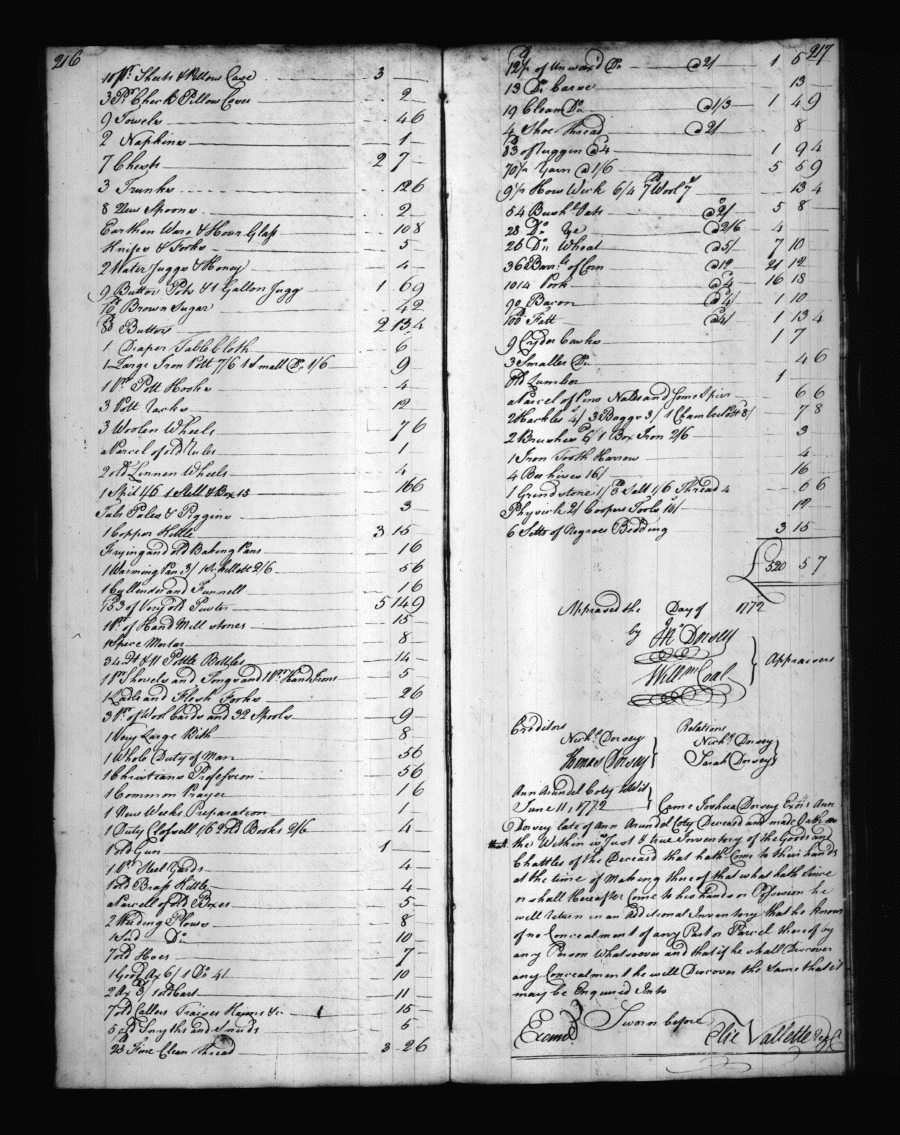 216
10 pr. Sheets & Pillow Case 3 —
3 Pr. Check Pillow Cases 2 —
9 Towels 4 6
2 Napkins 1 —
7 Chests 2 7 —
3 Trunks 12 6
8 New Spoons 2 —
Earthen Ware & Hour Glass 10 8
Knifes & Forks 5 —
2 Water Juggs & Honey 4 —
9 Butter Pots & 1 Gallon Jugg 1 6 9
Brown Sugar 4 2
Butter 2 13 4
1 Diaper Table Cloth 6 —
1 Large Iron Pott 7/6 1 Small Do. 1/6 9
1 Pr. Pott Hooks 4 —
3 Pott Racks 12 —
3 Woolen Wheels 7 6
a Parcel of old Tubs 1
2 old Linnen Wheels 4
1 Spit 1/6 1 Still & Box 15 16 6
Tubs Pales & Piggins 3 —
1 Copper Kettle 3 15
Frying and old Baking Pans 1 6
1 Warming Pan 3/ 1 Skillett 2/6 5 6
1 Cullender and Funnell 1 6
153 of Very old Pewter 5 14 9
1 Pr. of Hand Mill stones 15
1 Spice Mortar 8
34 Qt & 11 Pottle Bottles 14 —
1 Pr. Shovels and Tongs and 1 Pr. Hand Irons 5
1 Ladle and Flesh Forks 2 6
3 Pr. of Wool Cards and 32 Spools 9 —
1 Very Large Bible 8
1 Whole Duty of Man 5 6
1 Christians Profession 5 6
1 Common Prayer 1 6
1 New Weeks Preparation 1
1 Duty Closell 1/6 2 old Books 2/6 4
1 old Gun 1 —
1 Pr. Steel Yards 4 —
1 old Brass Kittle 4 —
a Parcell of old Boxes 5 —
2 Weeding Plows 8
1 Do. 10 —
7 old Hoes 7 —
1 Ax 6/ 1 Do. 4/ 10
2 Ax 3/ 1 old Cart 11 —
7 old Collers Traices Hames &c. 15 —
5 old Scyths and Sneads 5
23 Fine Clean Thread 3 2 6
217
12 1/2 of Unwaxd Do. @ 2/ 1 5
13 Do. Coarse 13
19 Clean Do. @ 1/3 1 4 9
4 Shoe Thread @ 2/ 8
@ 4 1 9 4
70 1/2 Yarn @ 1/6 5 5 9
13 4
54 Bushl. Oats @ 2/ 5 8 —
28 Do. Rye @ 2/6 4
25 Do. Wheat 7 10
36 Barrls. of Corn @ 12 21 12
1014 Pork @ 4 16 18
90 Bacon @ 4/ 1 10
100 Fatt @ 4/ 1 13 4
9 Cyder Casks 1 7
3 Smaller Do. 4 6
Old Lumber 1 —
a Parcel of New Nales and Some Spice 6 6
2 Hackles 4/ 3 Baggs 3/ 1 Chamber Pott 8/ 7 8
2 Brushes 1 Box Iron 2/6 3
1 Iron Tooth Harrow 4
4 Bee hives 16/ 16
1 Grind stone 1/ Salt 1/6 Thread 4 6 6
Physick 2/ Coopers Tools 10/ 12
6 Setts of Negroes Bedding 3 15
£ 520 5 7
Appraised the Day of 1772
by Jno. Dorsey
Willm Coal } Appraisers
Creditors Relations
Nichs. Dorsey Nichs. Dorsey
Thomas Dorsey Sarah Dorsey
Ann Arundel Coty to Wit
June 11, 1772 } Came Joshua Dorsey Exor. Ann
Dorsey late of Ann Arundel Coty Deceased and made Oath
that the Within is a Just & true Inventory of the Goods and
Chattles of the Deceased that hath Come to their hands
at the time of Making thereof that what hath Since
or shall Hereafter Come to his hands or Possession he
will return in an Additional Inventory that he Knows
of no Concealment of any Part or Parcel thereof by
any Person Whatsoever and that if he shall Discover
any Concealment he will Discover the Same that it
may be Enquired Into
Examd. Sworn before Elie Vallette